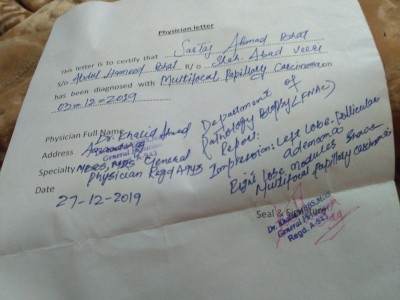 Physician letter
This letter is to certify that Sartaj Ahmad Bhat
S/o Abdul Hameed Bhat R/o Shah Abad Veeri
has been diagnosed with Multifocal Papillary Carcinoma
03-12-2019
Physician Full Name Dr. Khalid
Address
Specialty MBBS, General
Physician Regd A943
Date
27-12-2019
Department of
Pathology Biopsy (FNAC)
Report:
Impression: Left Lobe: Follicular
adenoma
Right lobe nodules
Multifocal papillary carcinoma
Seal &
General
Regd. A-943